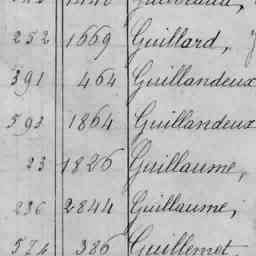 252 1669 Guillard,
391 464 Guillandeux
593 1864 Guillandeux
23 1826 Guillaume,
236 2844 Guillaume,
574 386 Guillemet